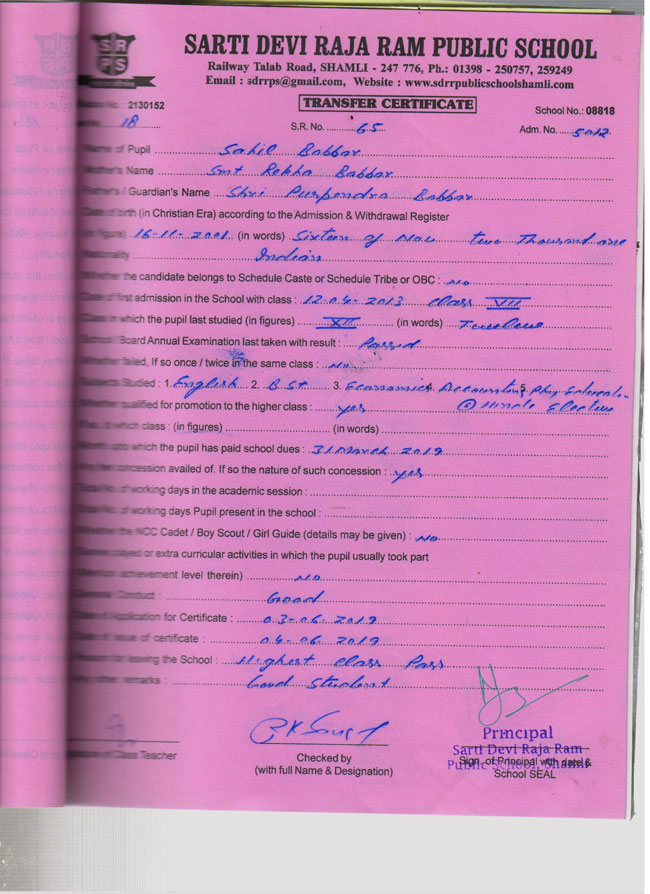 SRPS
SARTI DEVI RAJA RAM PUBLIC SCHOOL
Railway Talab Road, SHAMLI - 247 776, Ph.: 01398 - 250757, 259249
Email : sdrrps@gmail.com, Website : www.sdrrpublicschoolshamli.com
No. : 2130152 TRANSFER CERTIFICATE School No.: 08818
No. 18 S.R. No. 65 Adm. No. 5012
Name of Pupil Sahil Babbar
Mother's Name Smt Rekha Babbar
Father's / Guardian's Name Shri Babbar
Date of birth (in Christian Era) according to the Admission & Withdrawal Register
(in figure) 16-11-2001 (in words) Sixteen of Nov two Thousand one
Nationality Indian
Whether the candidate belongs to Schedule Caste or Schedule Tribe or OBC : No
Date of first admission in the School with class : 12-04-2013 Class VII
Class in which the pupil last studied (in figures) XII (in words) Twelve
School / Board Annual Examination last taken with result : Passed
Whether failed, If so once / twice in the same class : No
Subjects Studied : 1. English 2. B St 3. Economics 4. Accounting 5. Phy Education
Whether qualified for promotion to the higher class : yes Hindi Elective
If so, to which class : (in figures) (in words)
Month upto which the pupil has paid school dues : 31 March 2019
Any fee concession availed of. If so the nature of such concession : yes
Total No. of working days in the academic session :
Total No. of working days Pupil present in the school :
Whether the NCC Cadet / Boy Scout / Girl Guide (details may be given) : No
Games played or extra curricular activities in which the pupil usually took part
(Mention achievement level therein) No
General Conduct : Good
Date of Application for Certificate : 03-06-2019
Date of issue of certificate : 04-06-2019
Reason for leaving the School : Highest Class Pass
Any other remarks : Good Student
Principal
Sarti Devi Raja Ram
Public School, Shamli
Signature of Class Teacher
Checked by
(with full Name & Designation)
Sign. of Principal with date &
School SEAL